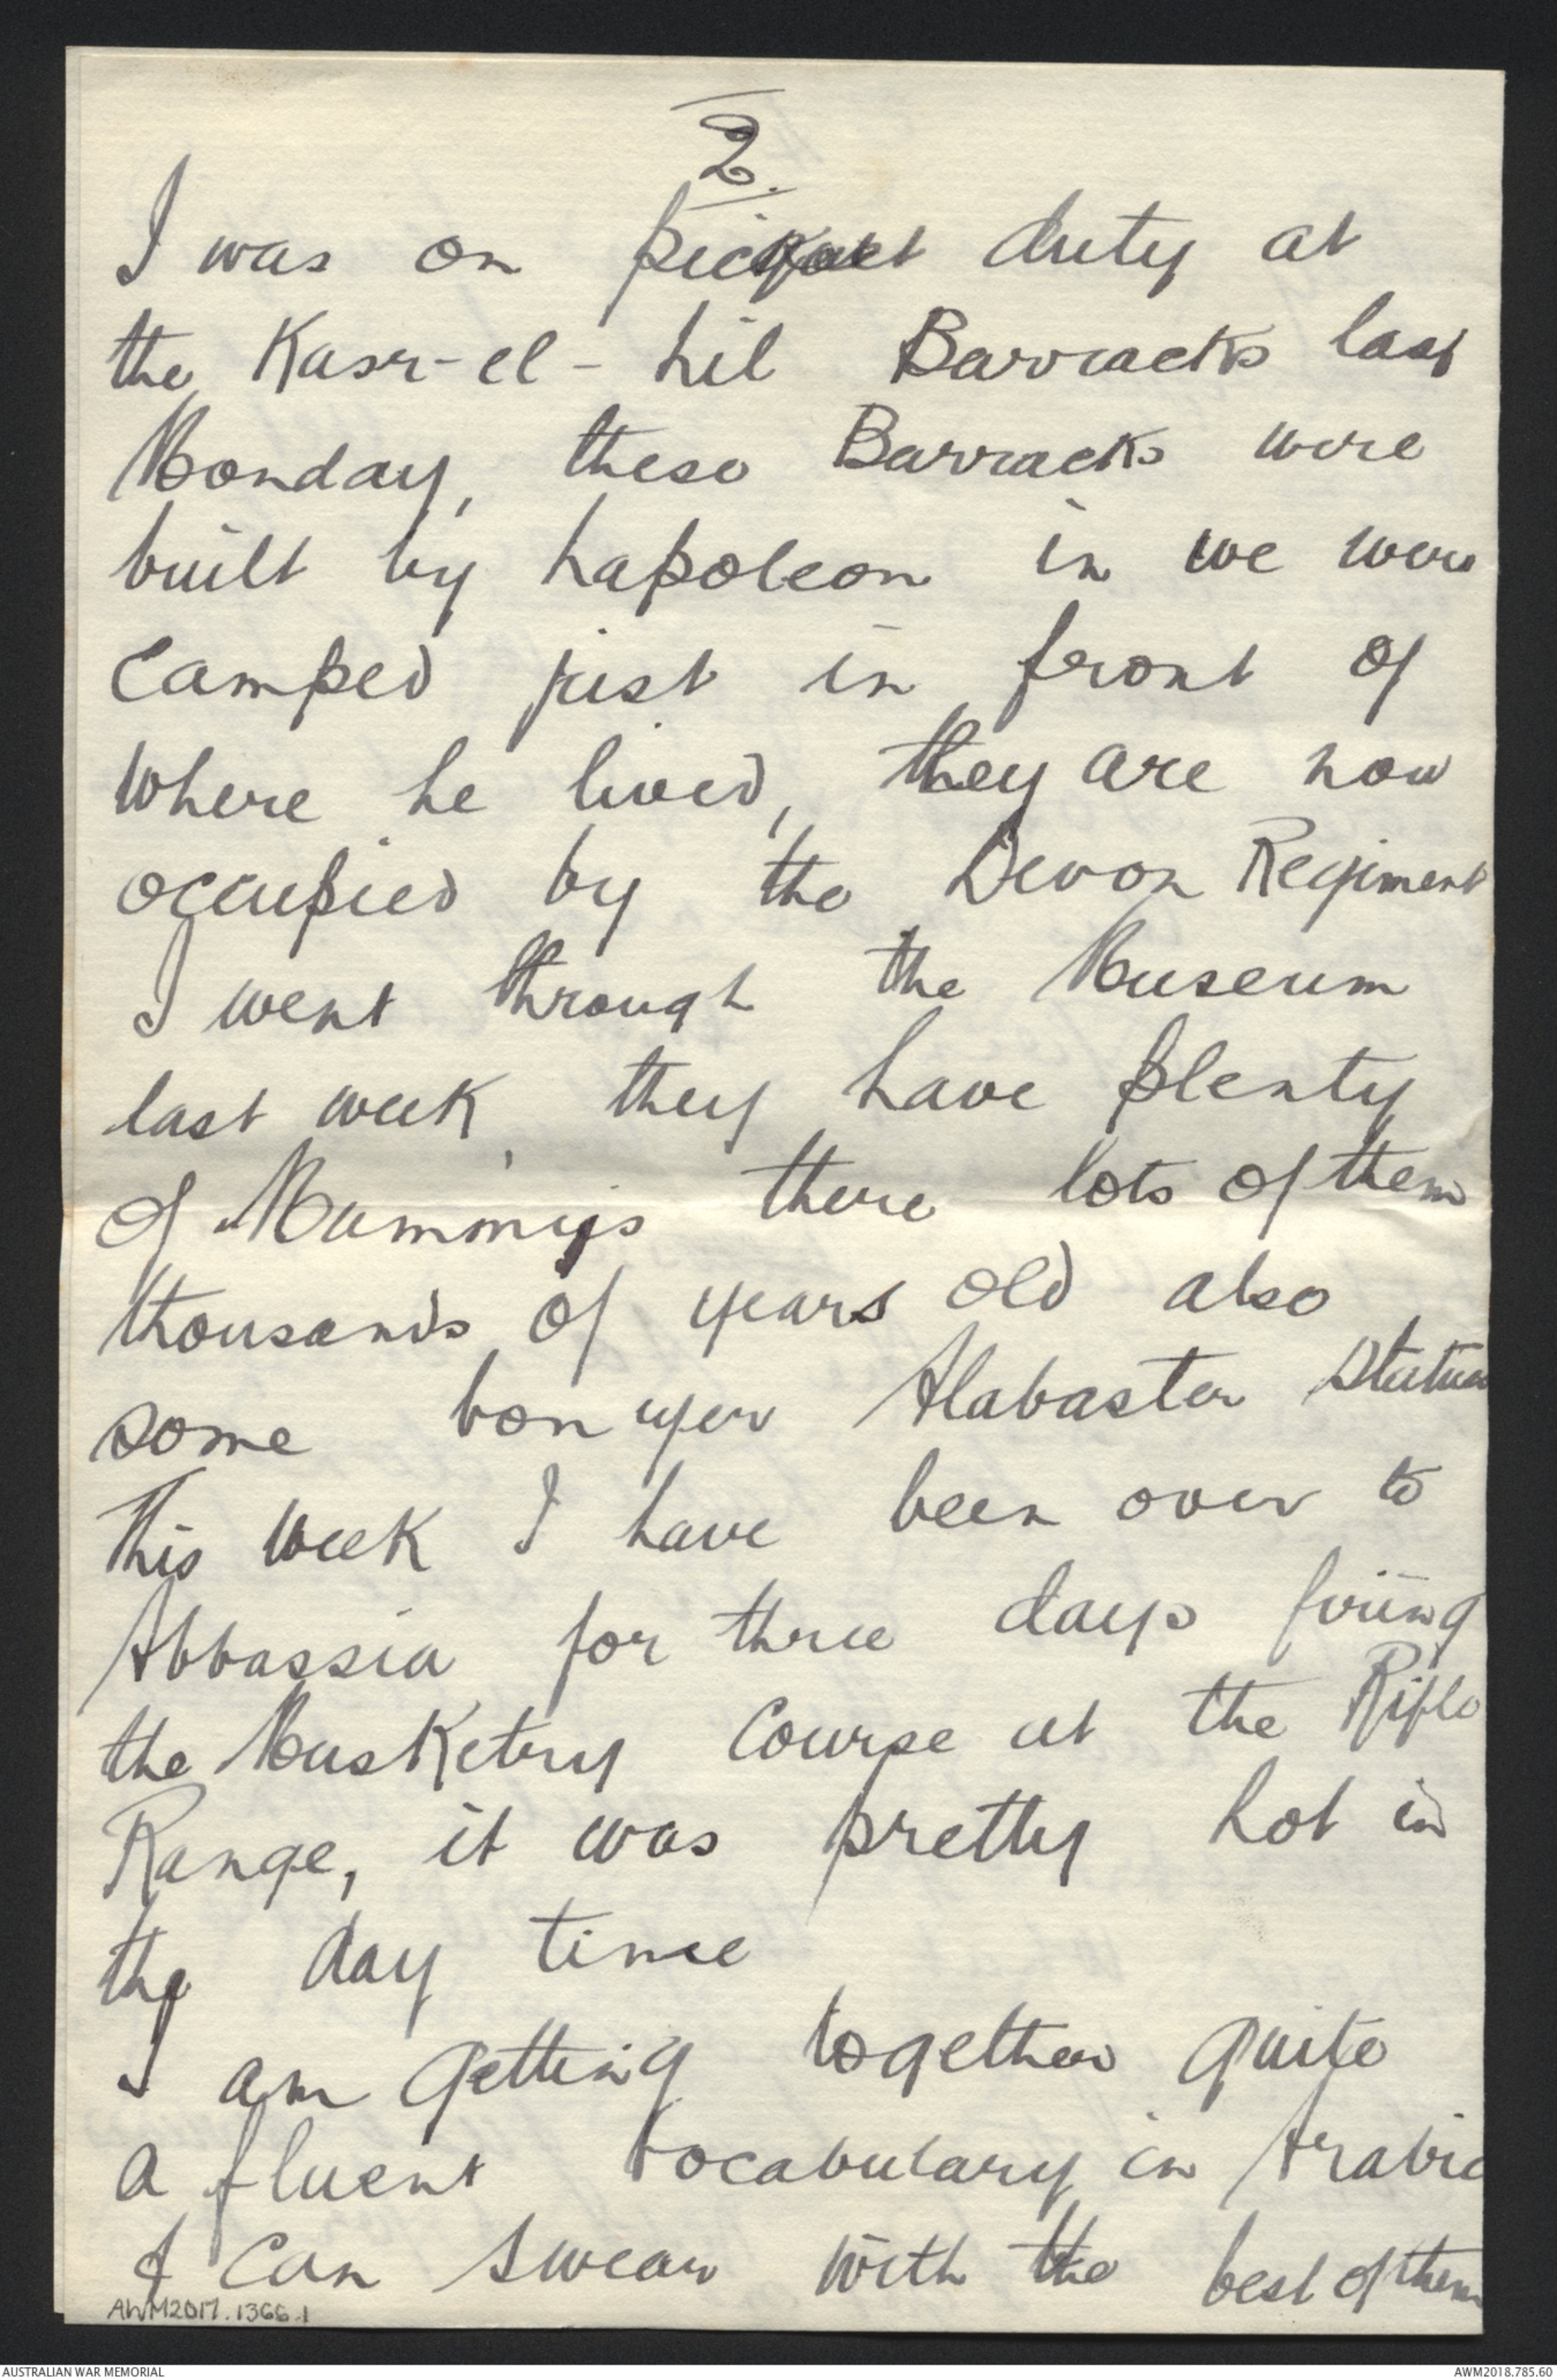 2.
I was on picquet duty at
the Kasr-el-Nil Barracks last
Monday, these Barracks were
built by Napoleon in we were
camped just in front of
where he lived, they are now
occupied by the Devon Regiment
I went through the Museum
last week, they have plenty
of Mummys there lots of them
thousands of years old also
some bonyer Alabaster Statues
This week I have been over to
Abbassia for three days firing
the Musketry Course at the Rifle
Range, it was pretty hot in
the day time
I am getting together quite
a fluent vocabulary in Arabic
I can swear with the best of them
AWM2017.1366.1
AUSTRALIAN WAR MEMORIAL
AWM2018.785.60